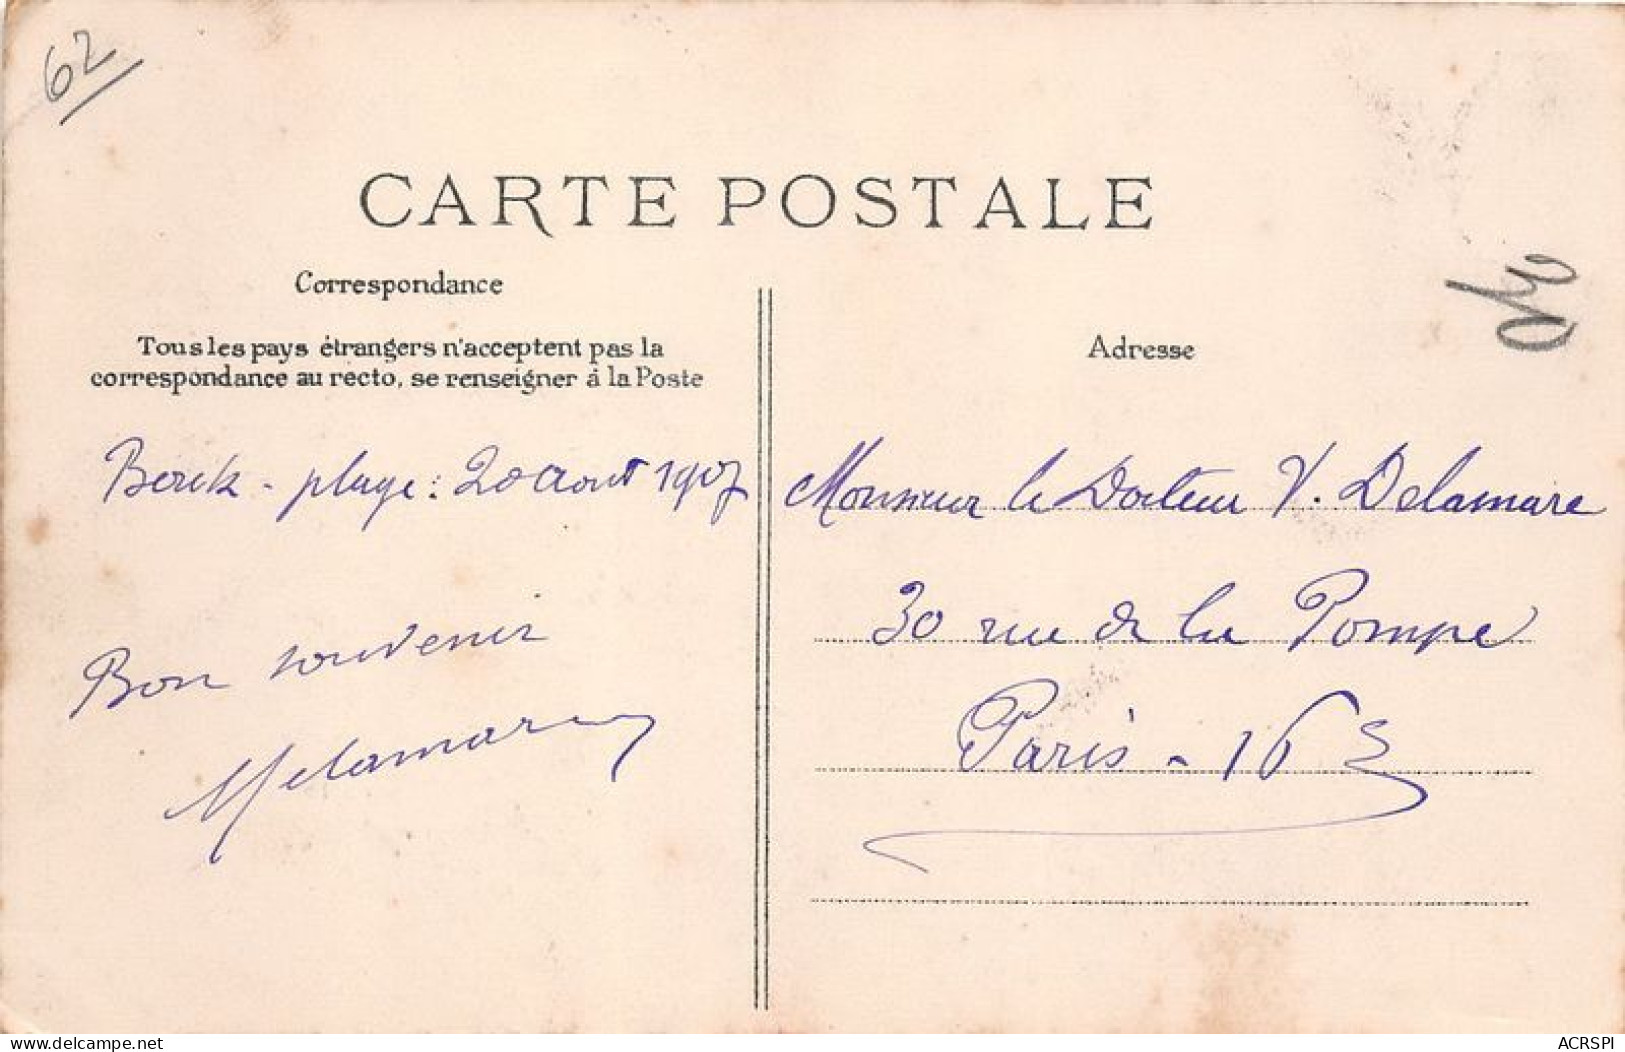 62
CARTE POSTALE
Correspondance
Tous les pays étrangers n'acceptent pas la
correspondance au recto, se renseigner à la Poste
Adresse
Berck-plage: 20 Aout 1907
Bon souvenir
Monsieur le Docteur V. Delamare
30 rue de la Pompe
Paris - 16e
www.delcampe.net
ACRSPI